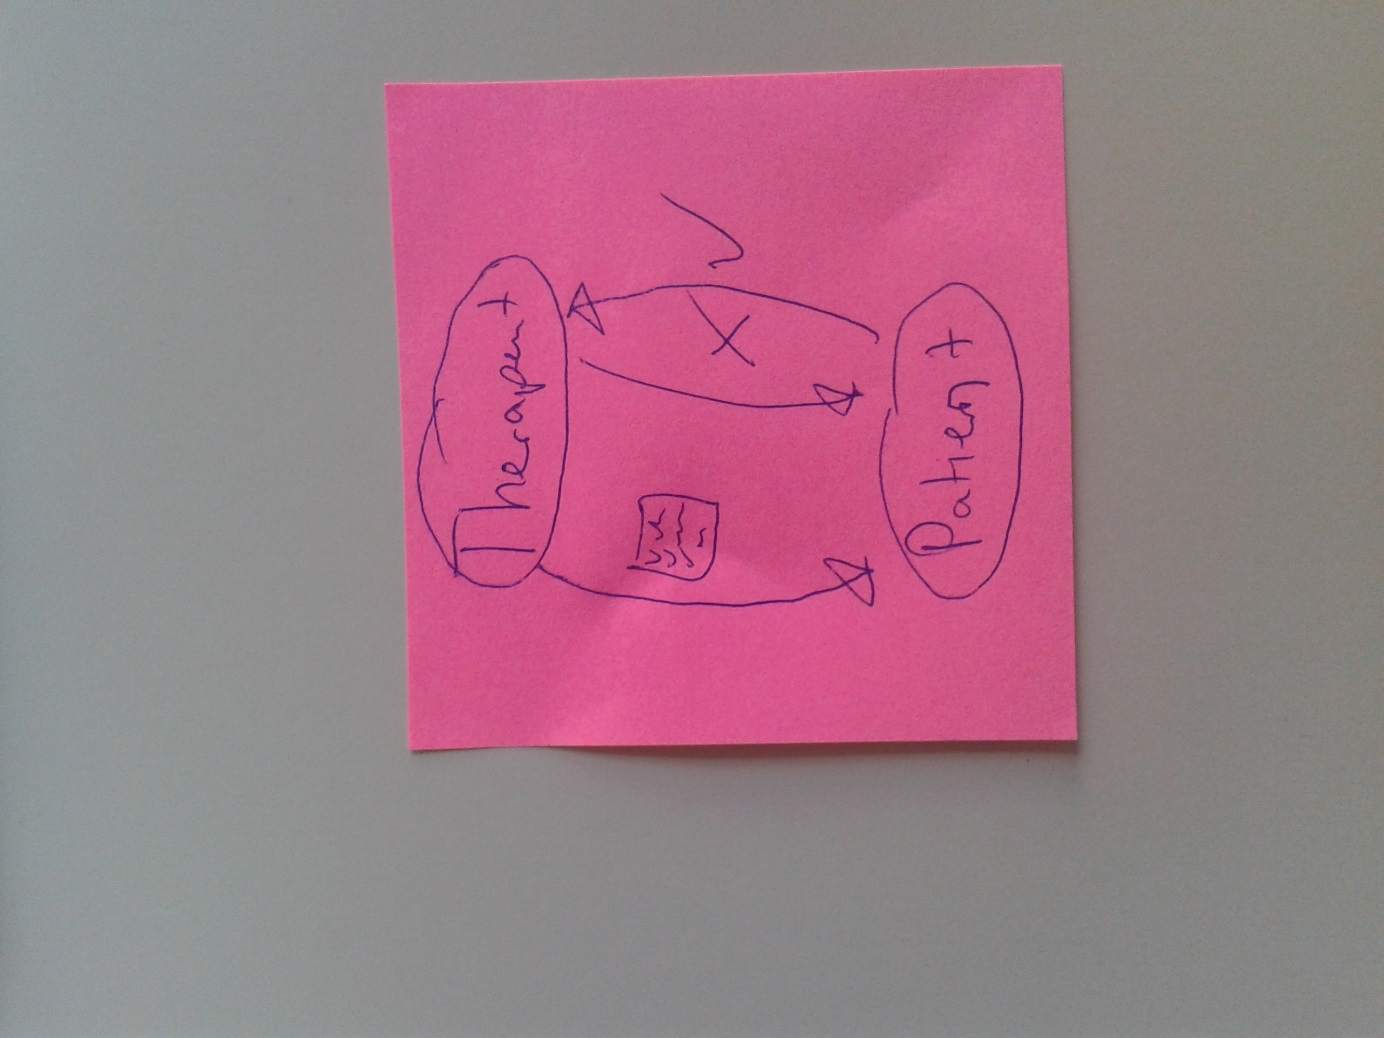 Therapeut
Patient